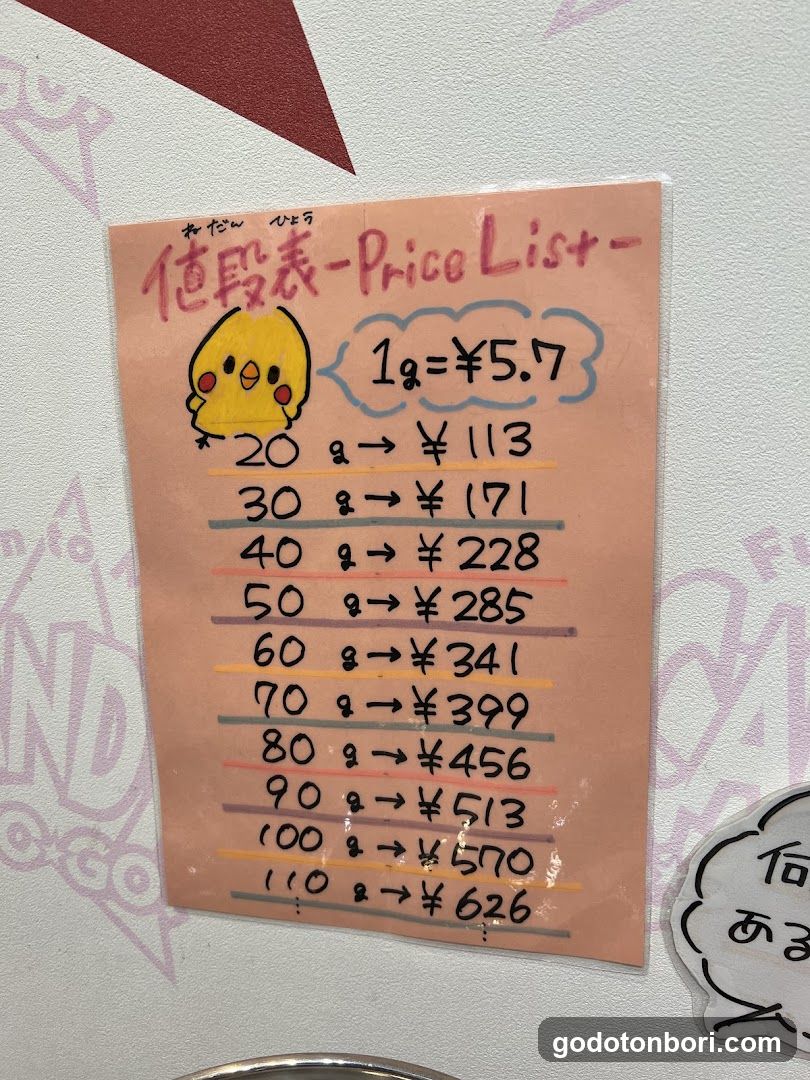 ねだん ひょう
値段表-Price List-
1g=¥5.7
20 g→¥113
30 g→¥171
40 g→¥228
50 g→¥285
60 g→¥341
70 g→¥399
80 g→¥456
90 g→¥513
100 g→¥570
110 g→¥626
何
ある
godotonbori.com